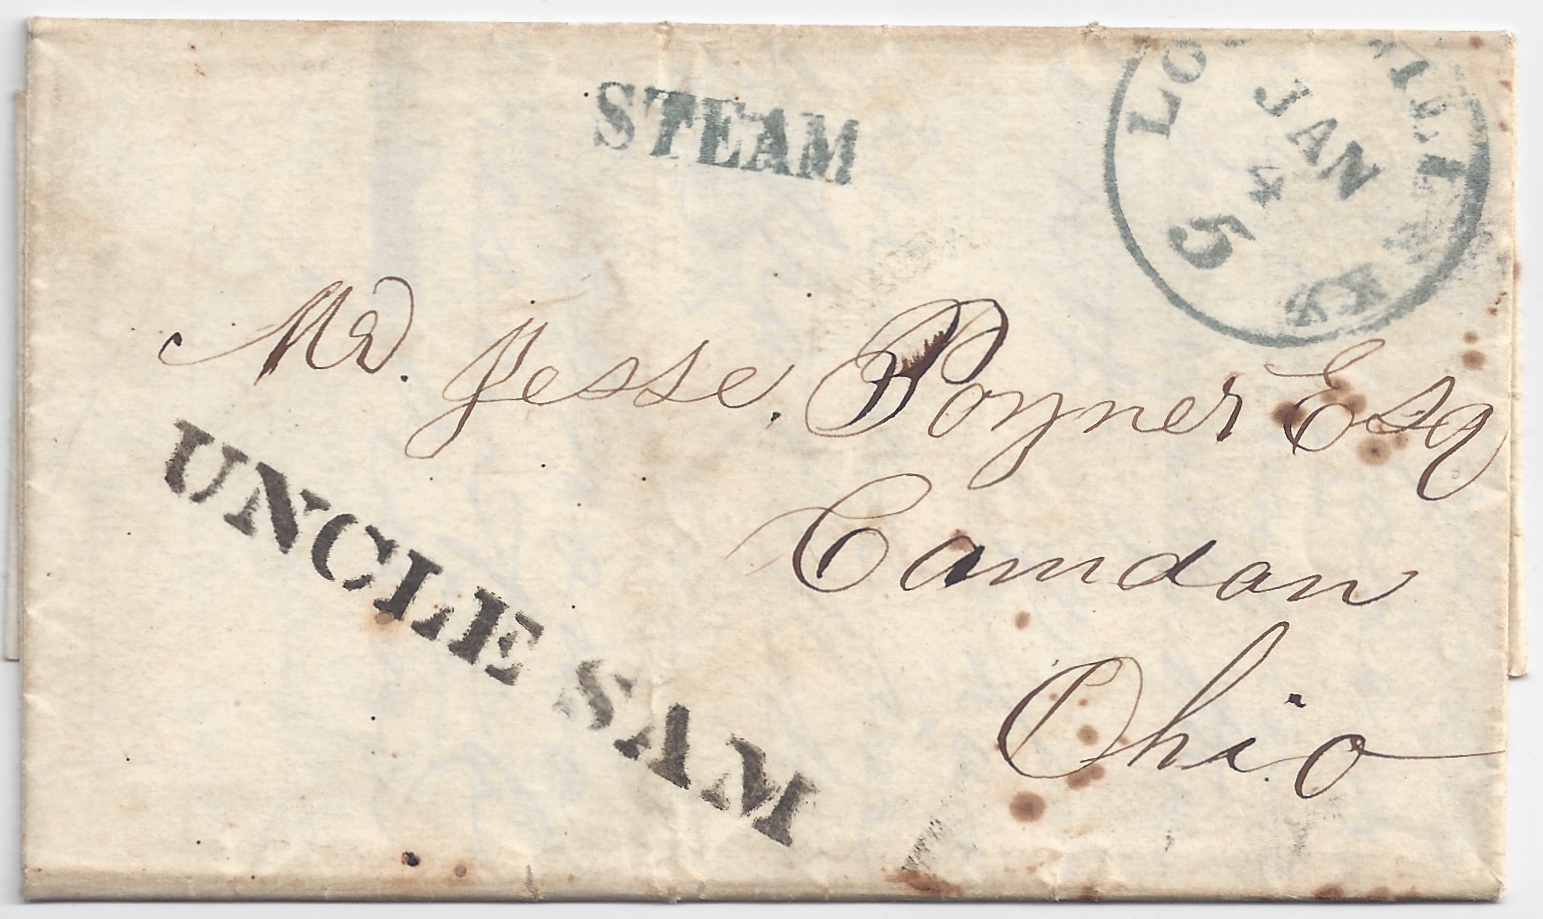 STEAM
LO ILLE KY
JAN
4
5
Mr. Jesse. Poyner Esq
Camdan
Ohio
UNCLE SAM